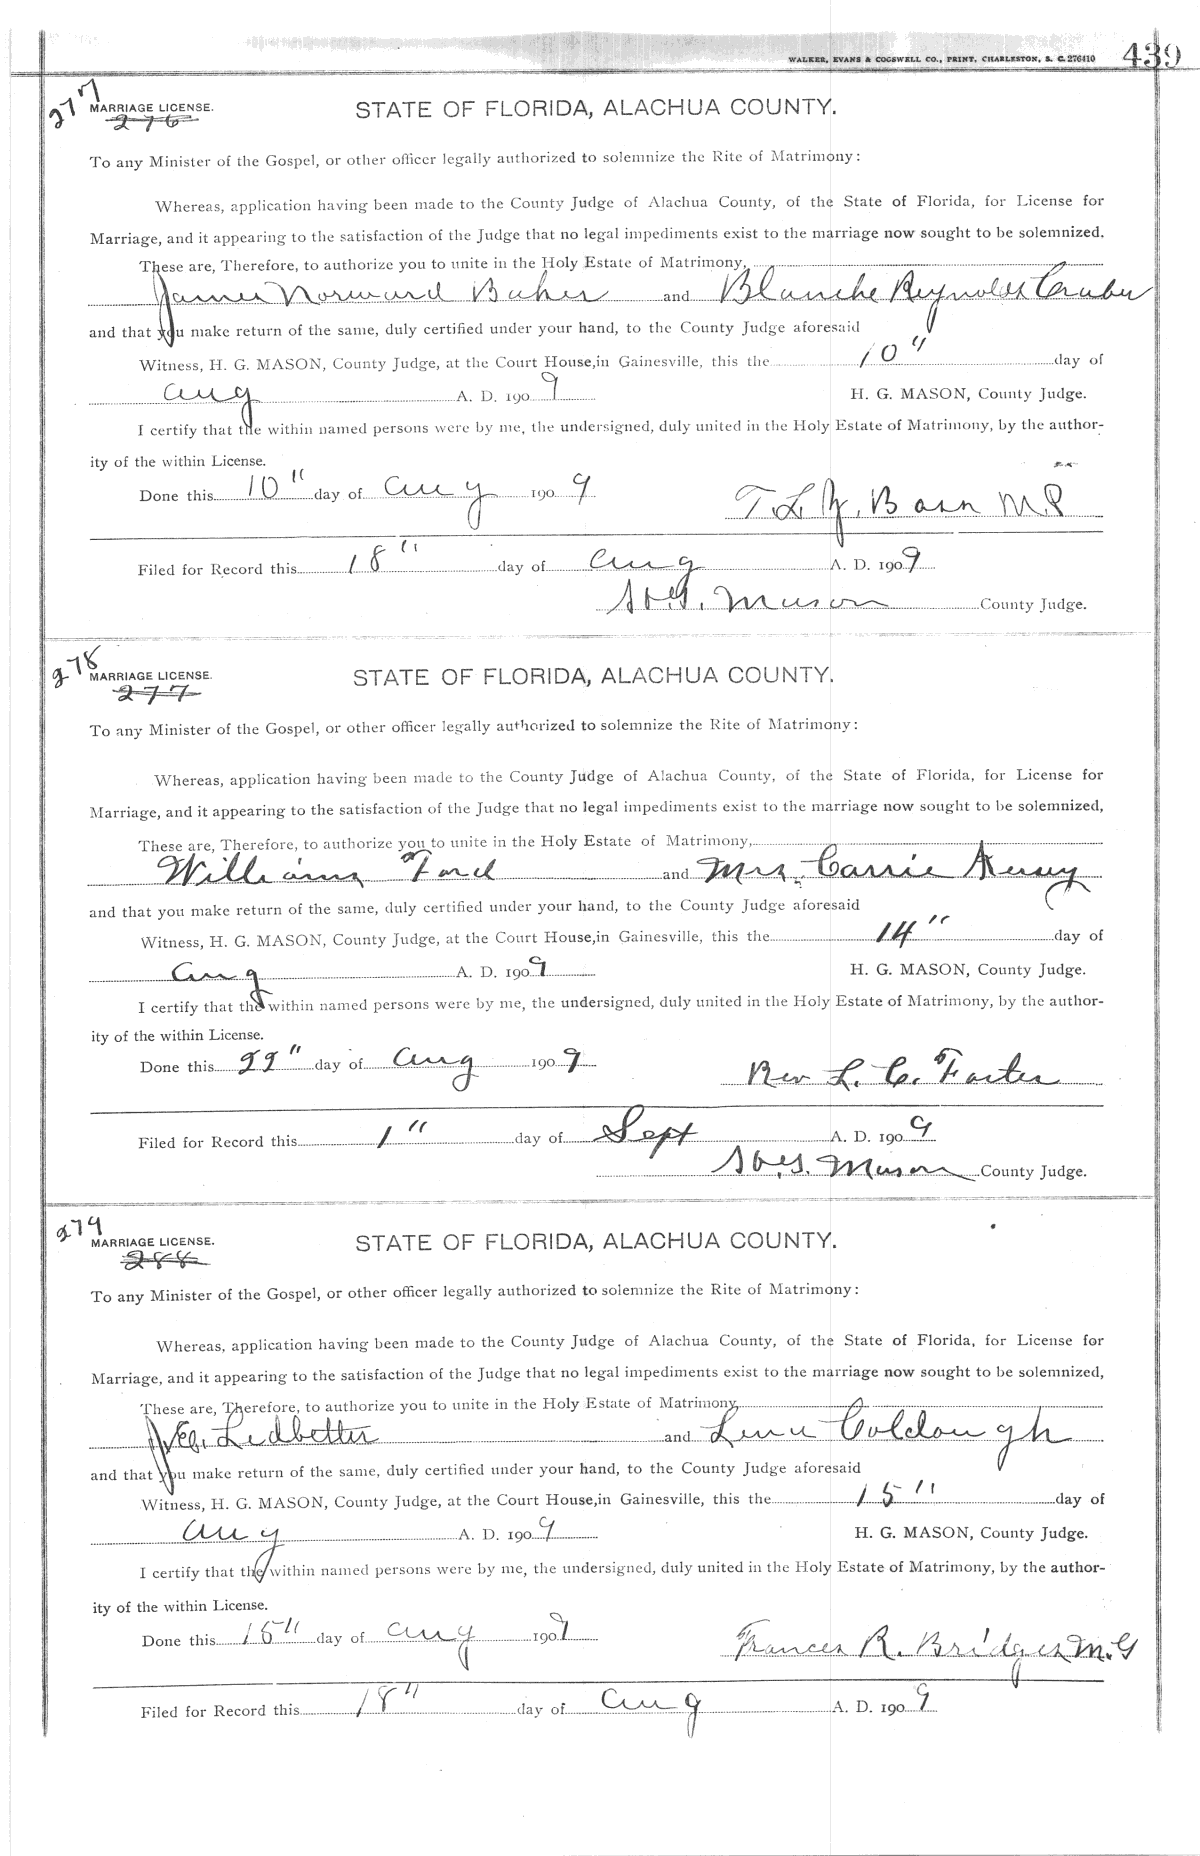 WALKER, EVANS & COGSWELL CO., PRINT, CHARLESTON, S. C. 276410 439
277
MARRIAGE LICENSE. STATE OF FLORIDA, ALACHUA COUNTY.
276
To any Minister of the Gospel, or other officer legally authorized to solemnize the Rite of Matrimony:
Whereas, application having been made to the County Judge of Alachua County, of the State of Florida, for License for
Marriage, and it appearing to the satisfaction of the Judge that no legal impediments exist to the marriage now sought to be solemnized,
These are, Therefore, to authorize you to unite in the Holy Estate of Matrimony,
James Norward Baker and Blanche Reynolds
and that you make return of the same, duly certified under your hand, to the County Judge aforesaid
Witness, H. G. MASON, County Judge, at the Court House, in Gainesville, this the 10" day of
Aug A. D. 1909 H. G. MASON, County Judge.
I certify that the within named persons were by me, the undersigned, duly united in the Holy Estate of Matrimony, by the author-
ity of the within License.
Done this 10" day of Aug 1909
T. L. Z. Barr M.P
Filed for Record this 18" day of Aug A. D. 1909
H. G. Mason County Judge.
278
MARRIAGE LICENSE. STATE OF FLORIDA, ALACHUA COUNTY.
277
To any Minister of the Gospel, or other officer legally authorized to solemnize the Rite of Matrimony:
Whereas, application having been made to the County Judge of Alachua County, of the State of Florida, for License for
Marriage, and it appearing to the satisfaction of the Judge that no legal impediments exist to the marriage now sought to be solemnized,
These are, Therefore, to authorize you to unite in the Holy Estate of Matrimony,
Williams Ford and Mrs. Carrie Kersey
and that you make return of the same, duly certified under your hand, to the County Judge aforesaid
Witness, H. G. MASON, County Judge, at the Court House, in Gainesville, this the 14" day of
Aug A. D. 1909 H. G. MASON, County Judge.
I certify that the within named persons were by me, the undersigned, duly united in the Holy Estate of Matrimony, by the author-
ity of the within License.
Done this 22" day of Aug 1909
Rev L. C. Foster
Filed for Record this 1" day of Sept A. D. 1909
H. G. Mason County Judge.
279
MARRIAGE LICENSE. STATE OF FLORIDA, ALACHUA COUNTY.
288
To any Minister of the Gospel, or other officer legally authorized to solemnize the Rite of Matrimony:
Whereas, application having been made to the County Judge of Alachua County, of the State of Florida, for License for
Marriage, and it appearing to the satisfaction of the Judge that no legal impediments exist to the marriage now sought to be solemnized,
These are, Therefore, to authorize you to unite in the Holy Estate of Matrimony,
Ledbetter and Lena Coldough
and that you make return of the same, duly certified under your hand, to the County Judge aforesaid
Witness, H. G. MASON, County Judge, at the Court House, in Gainesville, this the 15" day of
Aug A. D. 1909 H. G. MASON, County Judge.
I certify that the within named persons were by me, the undersigned, duly united in the Holy Estate of Matrimony, by the author-
ity of the within License.
Done this 15" day of Aug 1909
Frances R. Bridges M.G
Filed for Record this 18" day of Aug A. D. 1909